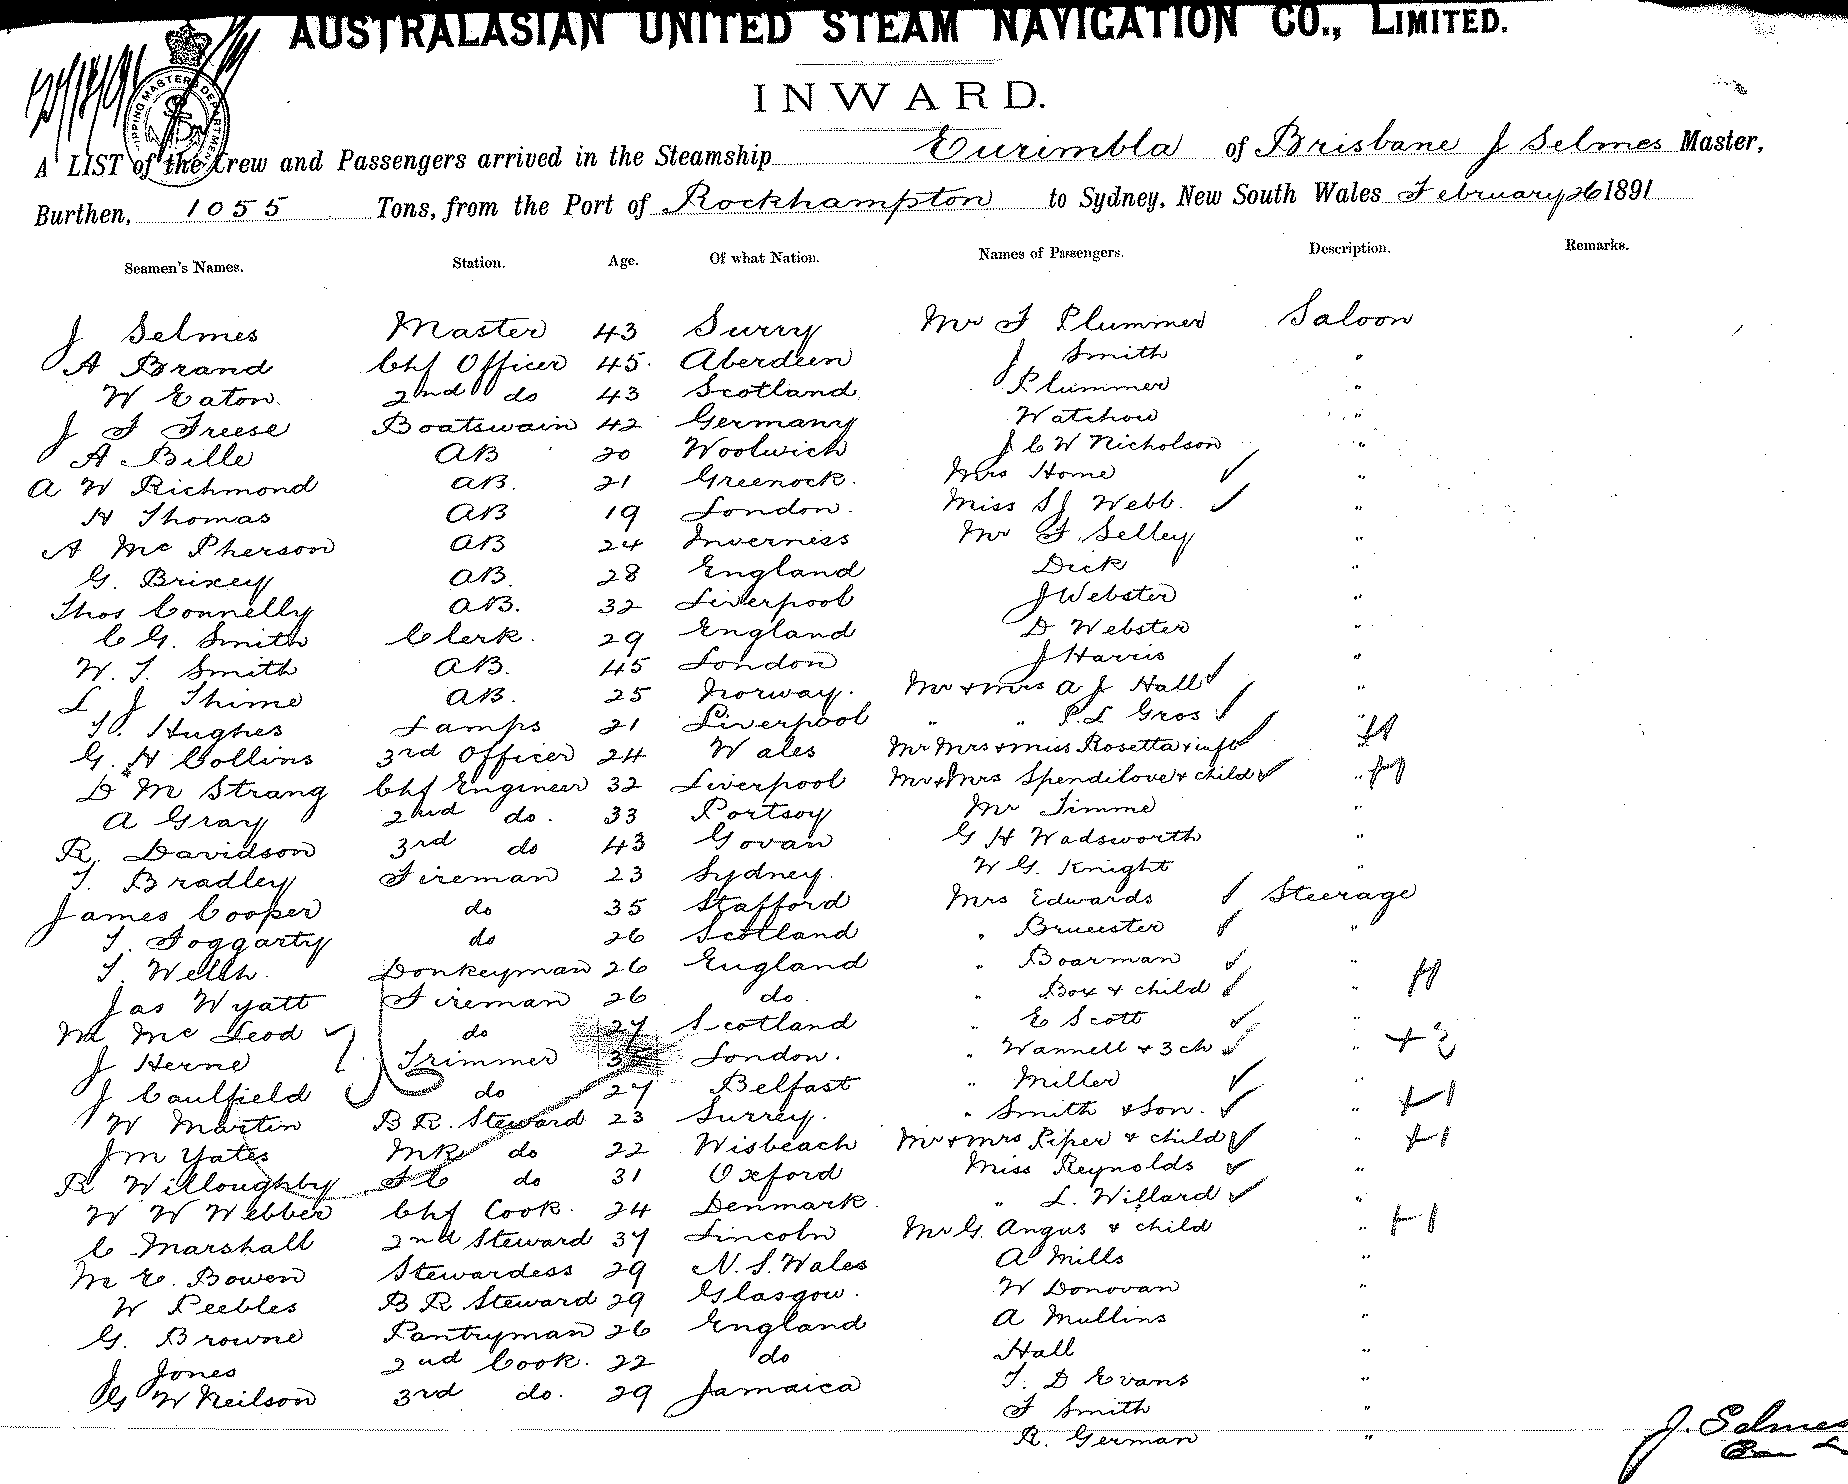 AUSTRALASIAN UNITED STEAM NAVIGATION CO., LIMITED.
INWARD.
A LIST of the Crew and Passengers arrived in the Steamship Eurimbla of Brisbane J Selmes Master,
Burthen, 1055 Tons, from the Port of Rockhampton to Sydney, New South Wales February 26 1891
Seamen's Names. Station. Age. Of what Nation. Names of Passengers. Description. Remarks.
J Selmes Master 43 Surry Mr F Plummer Saloon
A Brand Chf Officer 45. Aberdeen J Smith "
W Eaton 2nd do 43 Scotland Plummer "
J F Freese Boatswain 42 Germany Watchow "
A Bille AB 20 Woolwich J C W Nicholson "
A W Richmond AB. 21 Greenock. Mrs Home "
H Thomas AB 19 London. Miss S J Webb. "
A Mc Pherson AB 24 Inverness Mr F Selley "
G. Brixey AB. 28 England Dick "
Thos Connelly AB. 32 Liverpool J Webster "
C G. Smith Clerk. 29 England D Webster "
W. T. Smith AB. 45 London J Harris "
L J Thime AB. 25 Norway. Mr & Mrs A J Hall "
T. Hughes Lamps 21 Liverpool " " P. L Gros "
G. H Collins 3rd Officer 24 Wales Mr Mrs & Miss Rosetta & inft "
D M Strang Chf Engineer 32 Liverpool Mr & Mrs Spendilove & child "
A Gray 2nd do. 33 Portsoy Mr Timme "
R. Davidson 3rd do 43 Govan G H Wadsworth "
T. Bradley Fireman 23 Sydney. W G. Knight "
James Cooper do 35 Stafford Mrs Edwards Steerage
T. Foggarty do 26 Scotland " Bruester "
T. Welsh. Donkeyman 26 England " Boarman "
Jas Wyatt Fireman 26 do. " Box & child "
M Mc Leod do 27 Scotland " E Scott "
J Herne Trimmer London. " Wannell & 3 ch " + 3
J Caulfield do 27 Belfast " Miller "
W Martin B R. Steward 23 Surrey. " Smith & Son. " + 1
J M Yates MR do 22 Wisbeach Mr & Mrs Piper & child " + 1
R Willoughby do 31 Oxford Miss Reynolds "
W W Webber Chf Cook. 24 Denmark. " L. Willard "
C Marshall 2nd Steward 37 Lincoln Mr G. Angus & child " + 1
M E. Bowen Stewardess 29 N. S. Wales A Mills "
W Peebles B R Steward 29 Glasgow. W Donovan "
G. Browne Pantryman 26 England A Mullins "
J Jones 2nd Cook. 22 do Hall "
G W Neilson 3rd do. 29 Jamaica T. D Evans "
F Smith "
R. German "
J. Selmes